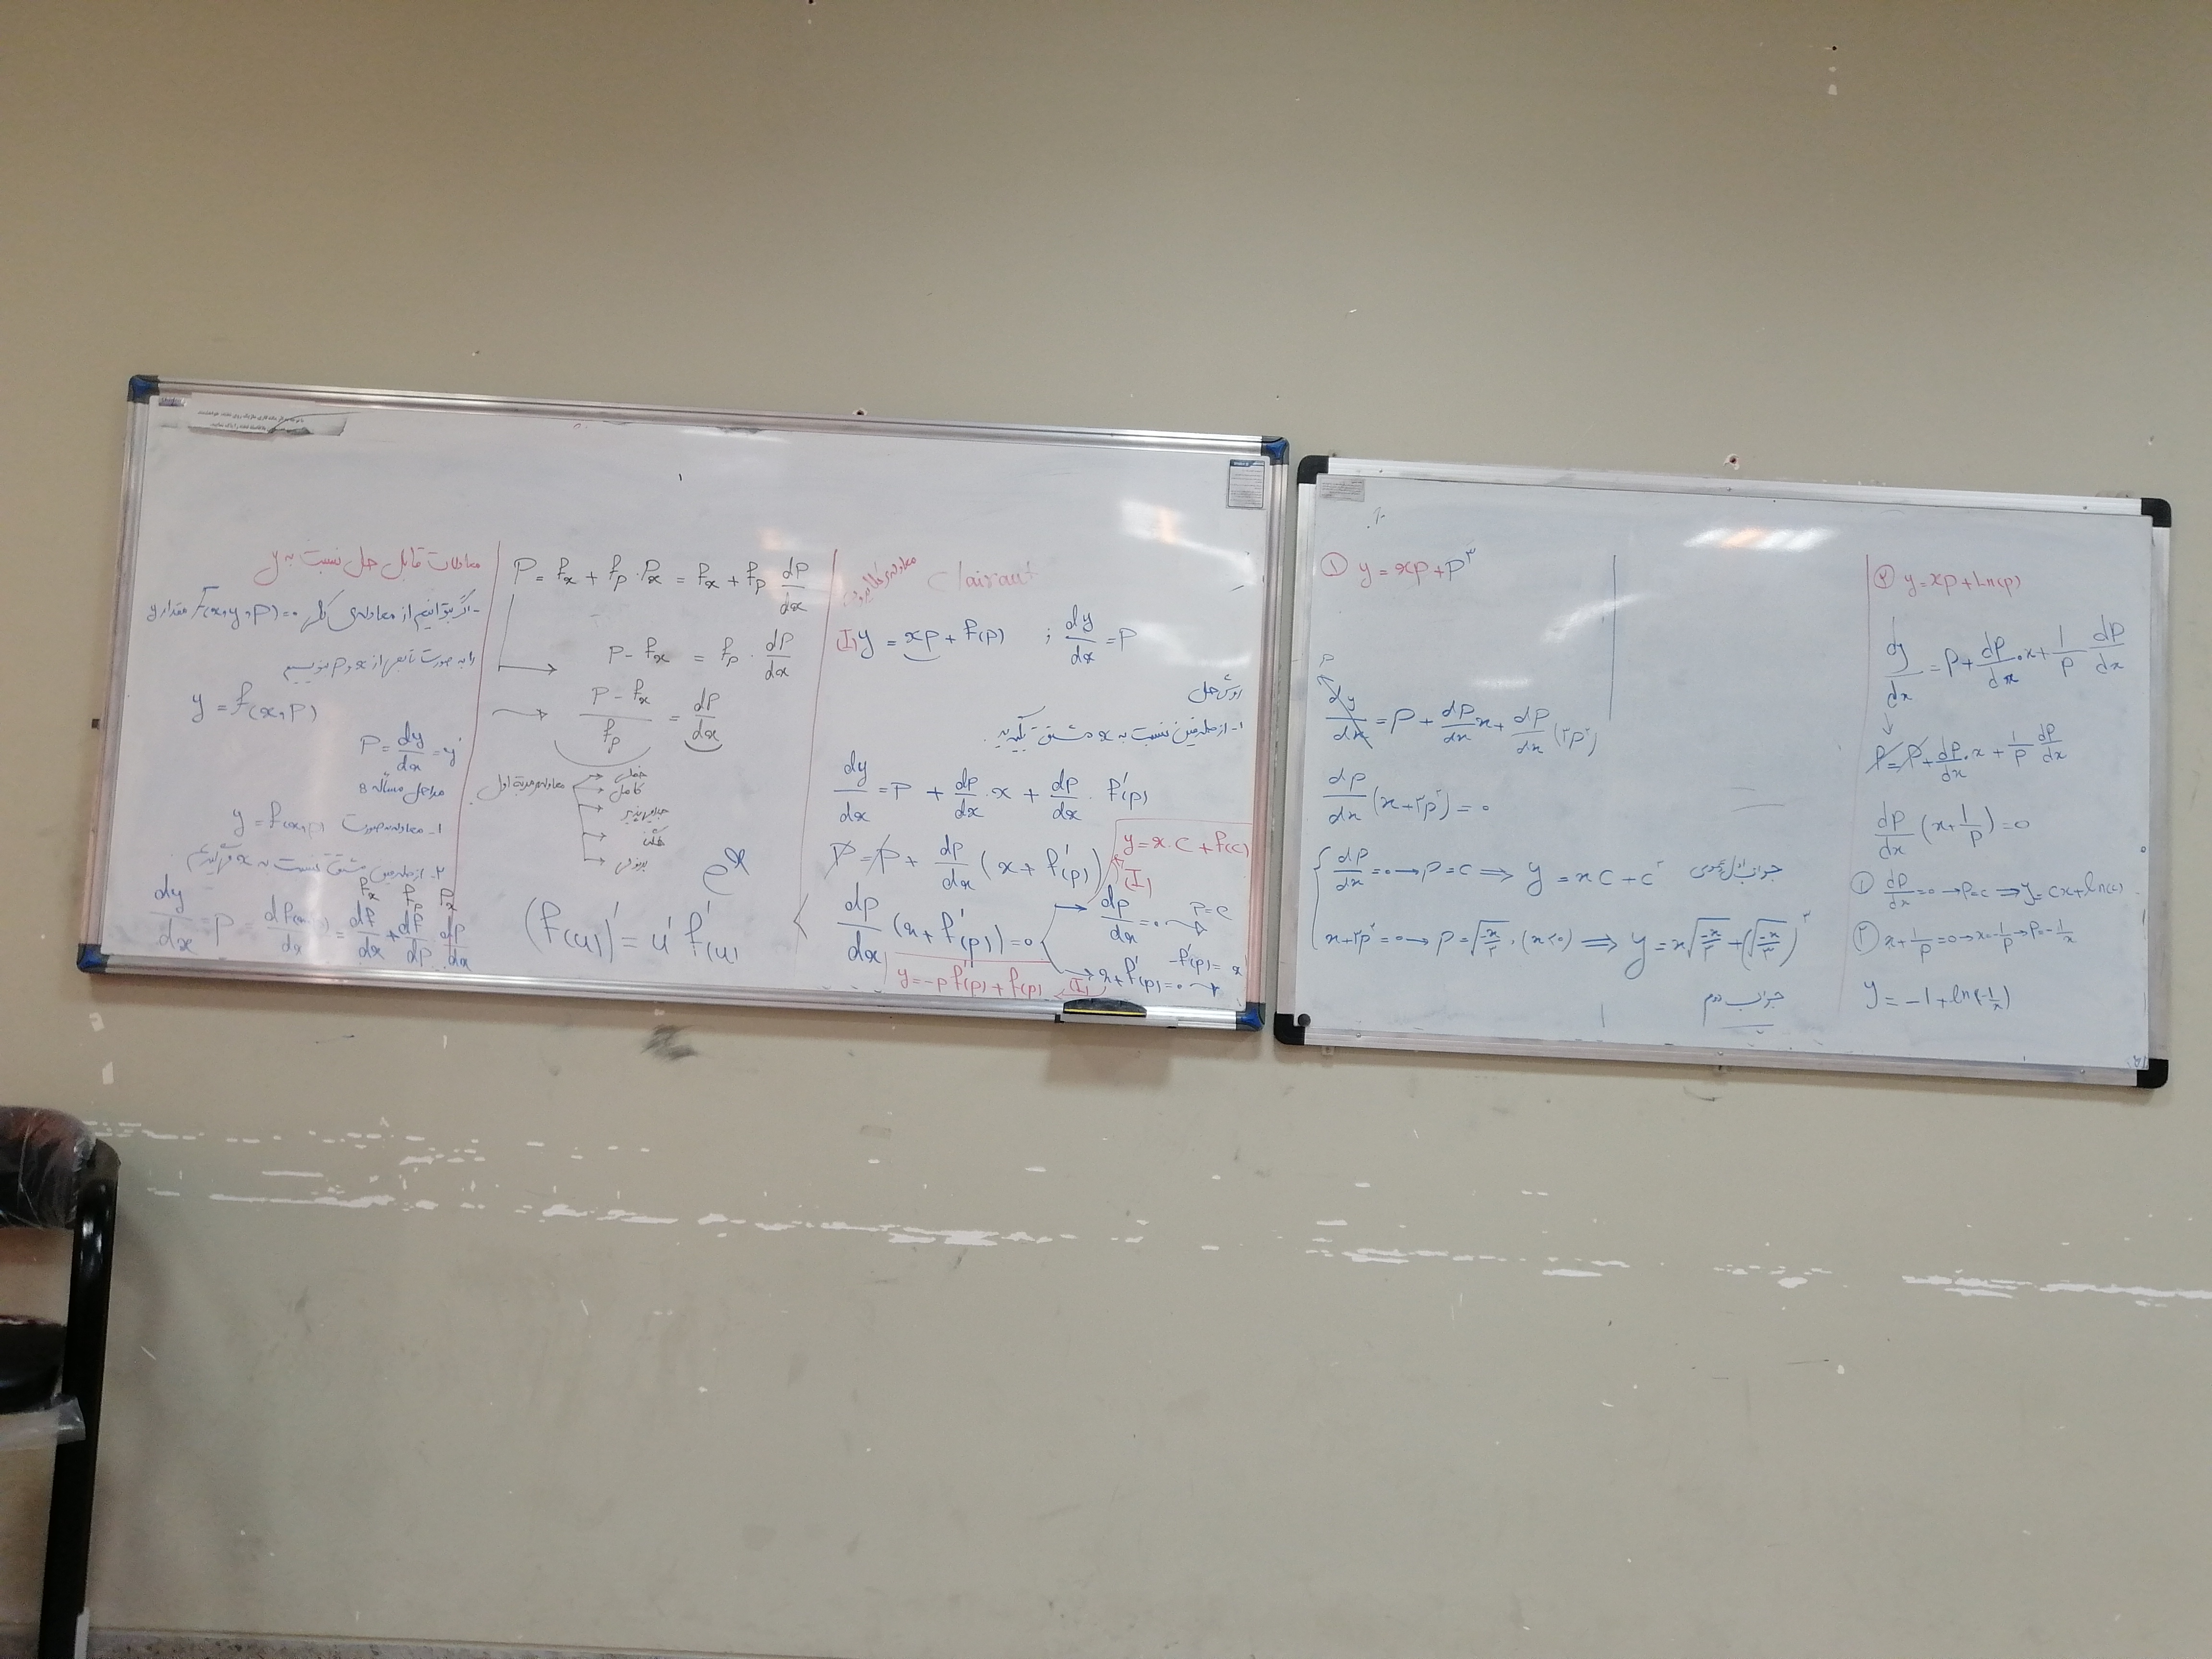 معادلات قابل حل نسبت به y
- اگر بتوانیم از معادله‌ی کلی F(x,y,p)=۰ مقدار y
را به صورت تابعی از x و p بنویسیم
y = f(x,p)
P = dy/dx = y'
مراحل مسأله 8
۱- معادله به صورت y = f(x,p)
۲- از طرفین مشتق نسبت به x می‌گیریم
dy/dx = p = df(x,p)/dx = df/dx + df/dp dp/dx
fx fp Px
P = fx + fp . Px = fx + fp dp/dx
P - fx = fp . dp/dx
(P - fx)/fp = dp/dx
معادله مرتبه اول
خطی
کامل
جدایی پذیر
همگن
برنولی
e^x
(f(u))' = u' f'(u)
معادله‌ی کلایروت: Clairaut
(I) y = xp + f(p) ; dy/dx = p
روش حل
۱- از طرفین نسبت به x مشتق بگیرید.
dy/dx = P + dp/dx . x + dp/dx . f'(p)
P = P + dp/dx (x + f'(p))
dp/dx (x + f'(p)) = 0
dp/dx = 0 P = c
(I)
y = x.c + f(c)
x + f'(p) = 0 -f'(p) = x
(I)
y = -p f'(p) + f(p)
① y = xp + p^۳
p
dy/dx = P + dp/dx x + dp/dx (۳p^۲)
dp/dx (x + ۳p^۲) = ۰
dp/dx = ۰ → p = c ⟹ y = xc + c^۳ جواب اول عمومی
x + ۳p^۲ = ۰ → p = √(-x/۳) , (x<۰) ⟹ y = x√(-x/۳) + (√(-x/۳))^۳
جواب دوم
② y = xp + Ln(p)
dy/dx = P + dp/dx . x + 1/p dp/dx
P = P + dp/dx . x + 1/p dp/dx
dp/dx (x + 1/p) = 0
① dp/dx = 0 → p = c ⟹ y = cx + ln(c)
② x + 1/p = 0 → x = -1/p → p = -1/x
y = -1 + ln(-1/x)